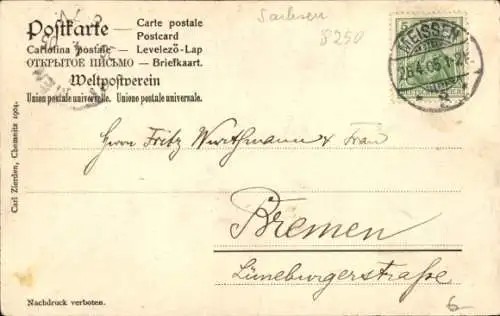 Sachsen
8250
Postkarte — Carte postale
Postcard
Cartolina postale — Levelező-Lap
ОТКРЫТОЕ ПИСЬМО — Briefkaart.
Weltpostverein
Union postale universelle. Unione postale universale.
MEISSEN
Carl Zierden, Chemnitz 1904.
Herrn Fritz Wurthmann & Frau
Bremen
Lüneburgerstraße
Nachdruck verboten.
6